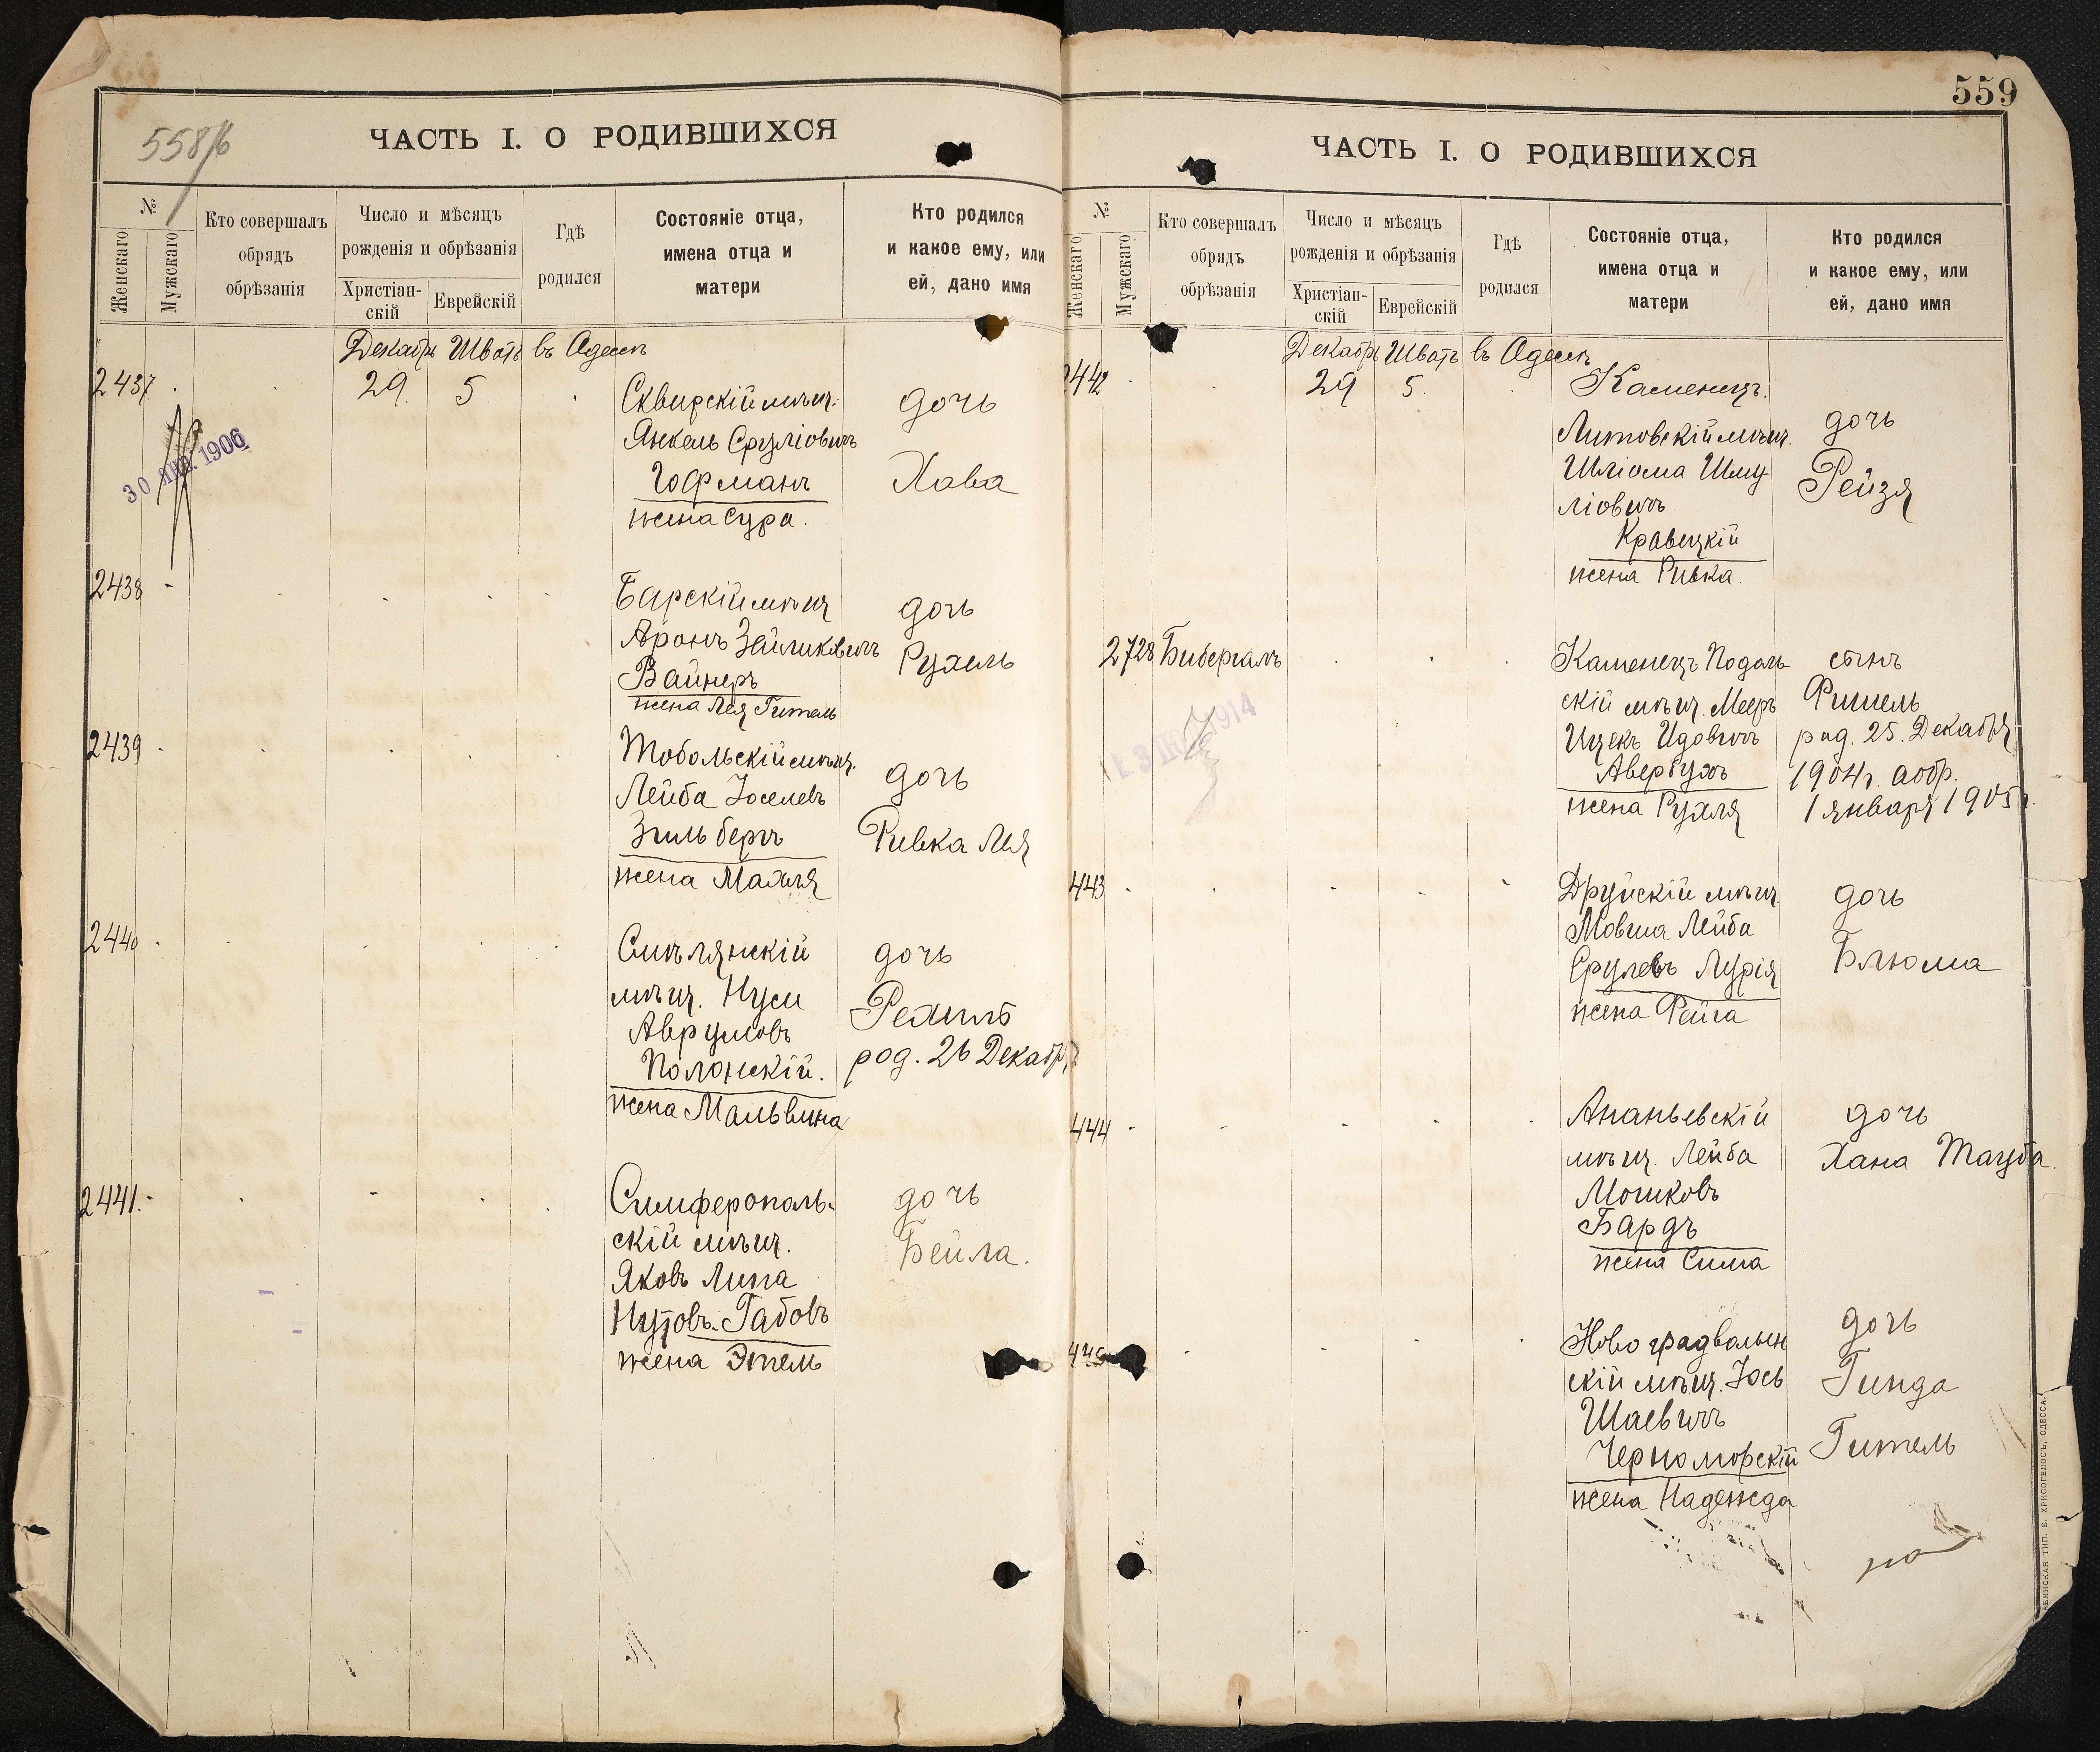 558/б
ЧАСТЬ I. О РОДИВШИХСЯ
№
Женскаго
Мужскаго
Кто совершалъ
обрядъ
обрѣзанія
Число и мѣсяцъ
рожденія и обрѣзанія
Христіан-
скій
Еврейскій
Гдѣ
родился
Состояніе отца,
имена отца и
матери
Кто родился
и какое ему, или
ей, дано имя
Декабрь Шватъ въ Одессѣ
2437
29 5
30 ЯНВ. 1906
Сквирскій мѣщ.
Янкель Сруліовичъ
Гофманъ
жена Сура.
дочь
Хава
2438
Барскій мѣщ
Аронъ Зейликовичъ
Вайнеръ
жена Лея Гитель
дочь
Рухель
2439
Тобольскій мѣщ.
Лейба Іоселевъ
Зильбергъ
жена Махля
дочь
Ривка Лея
2440
Смѣлянскій
мѣщ. Нусн
Аврумовъ
Полонскій.
жена Мальвина
дочь
Рехиль
род. 26 Декабря
2441.
Симферополь-
скій мѣщ.
Яковъ Липа
Нутовъ Габовъ
жена Этель
дочь
Бейла.
559
ЧАСТЬ I. О РОДИВШИХСЯ
№
Женскаго
Мужскаго
Кто совершалъ
обрядъ
обрѣзанія
Число и мѣсяцъ
рожденія и обрѣзанія
Христіан-
скій
Еврейскій
Гдѣ
родился
Состояніе отца,
имена отца и
матери
Кто родился
и какое ему, или
ей, дано имя
Декабрь Шватъ въ Одессѣ
2442
29 5
Каменецъ.
Литовскій мѣщ.
Шліома Шму
ліовичъ
Кравецкій
жена Ривка.
дочь
Рейзя
2728 Бибергалъ
1914
Каменецъ Подоль
скій мѣщ. Мееръ
Ицекъ Идовичъ
Авербухъ
жена Рухля
сынъ
Фишель
род. 25. Декабря
1904 г. а обр.
1 января 1905 г.
443
Друйскій мѣщ.
Мовша Лейба
Срулевъ Лурія
жена Фейга
дочь
Блюма
444
Ананьевскій
мѣщ. Лейба
Мошковъ
Бардъ
жена Сима
дочь
Хана Тауба.
445
Новоградволын
скій мѣщ. Іось
Шаевичъ
Черноморскій
жена Надежда
дочь
Гинда
Гитель
ТИП. Е. ХРИСОГЕЛОСЪ, ОДЕССА.